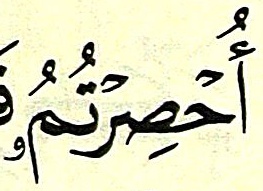 أُحۡصِرۡتُمُۥ